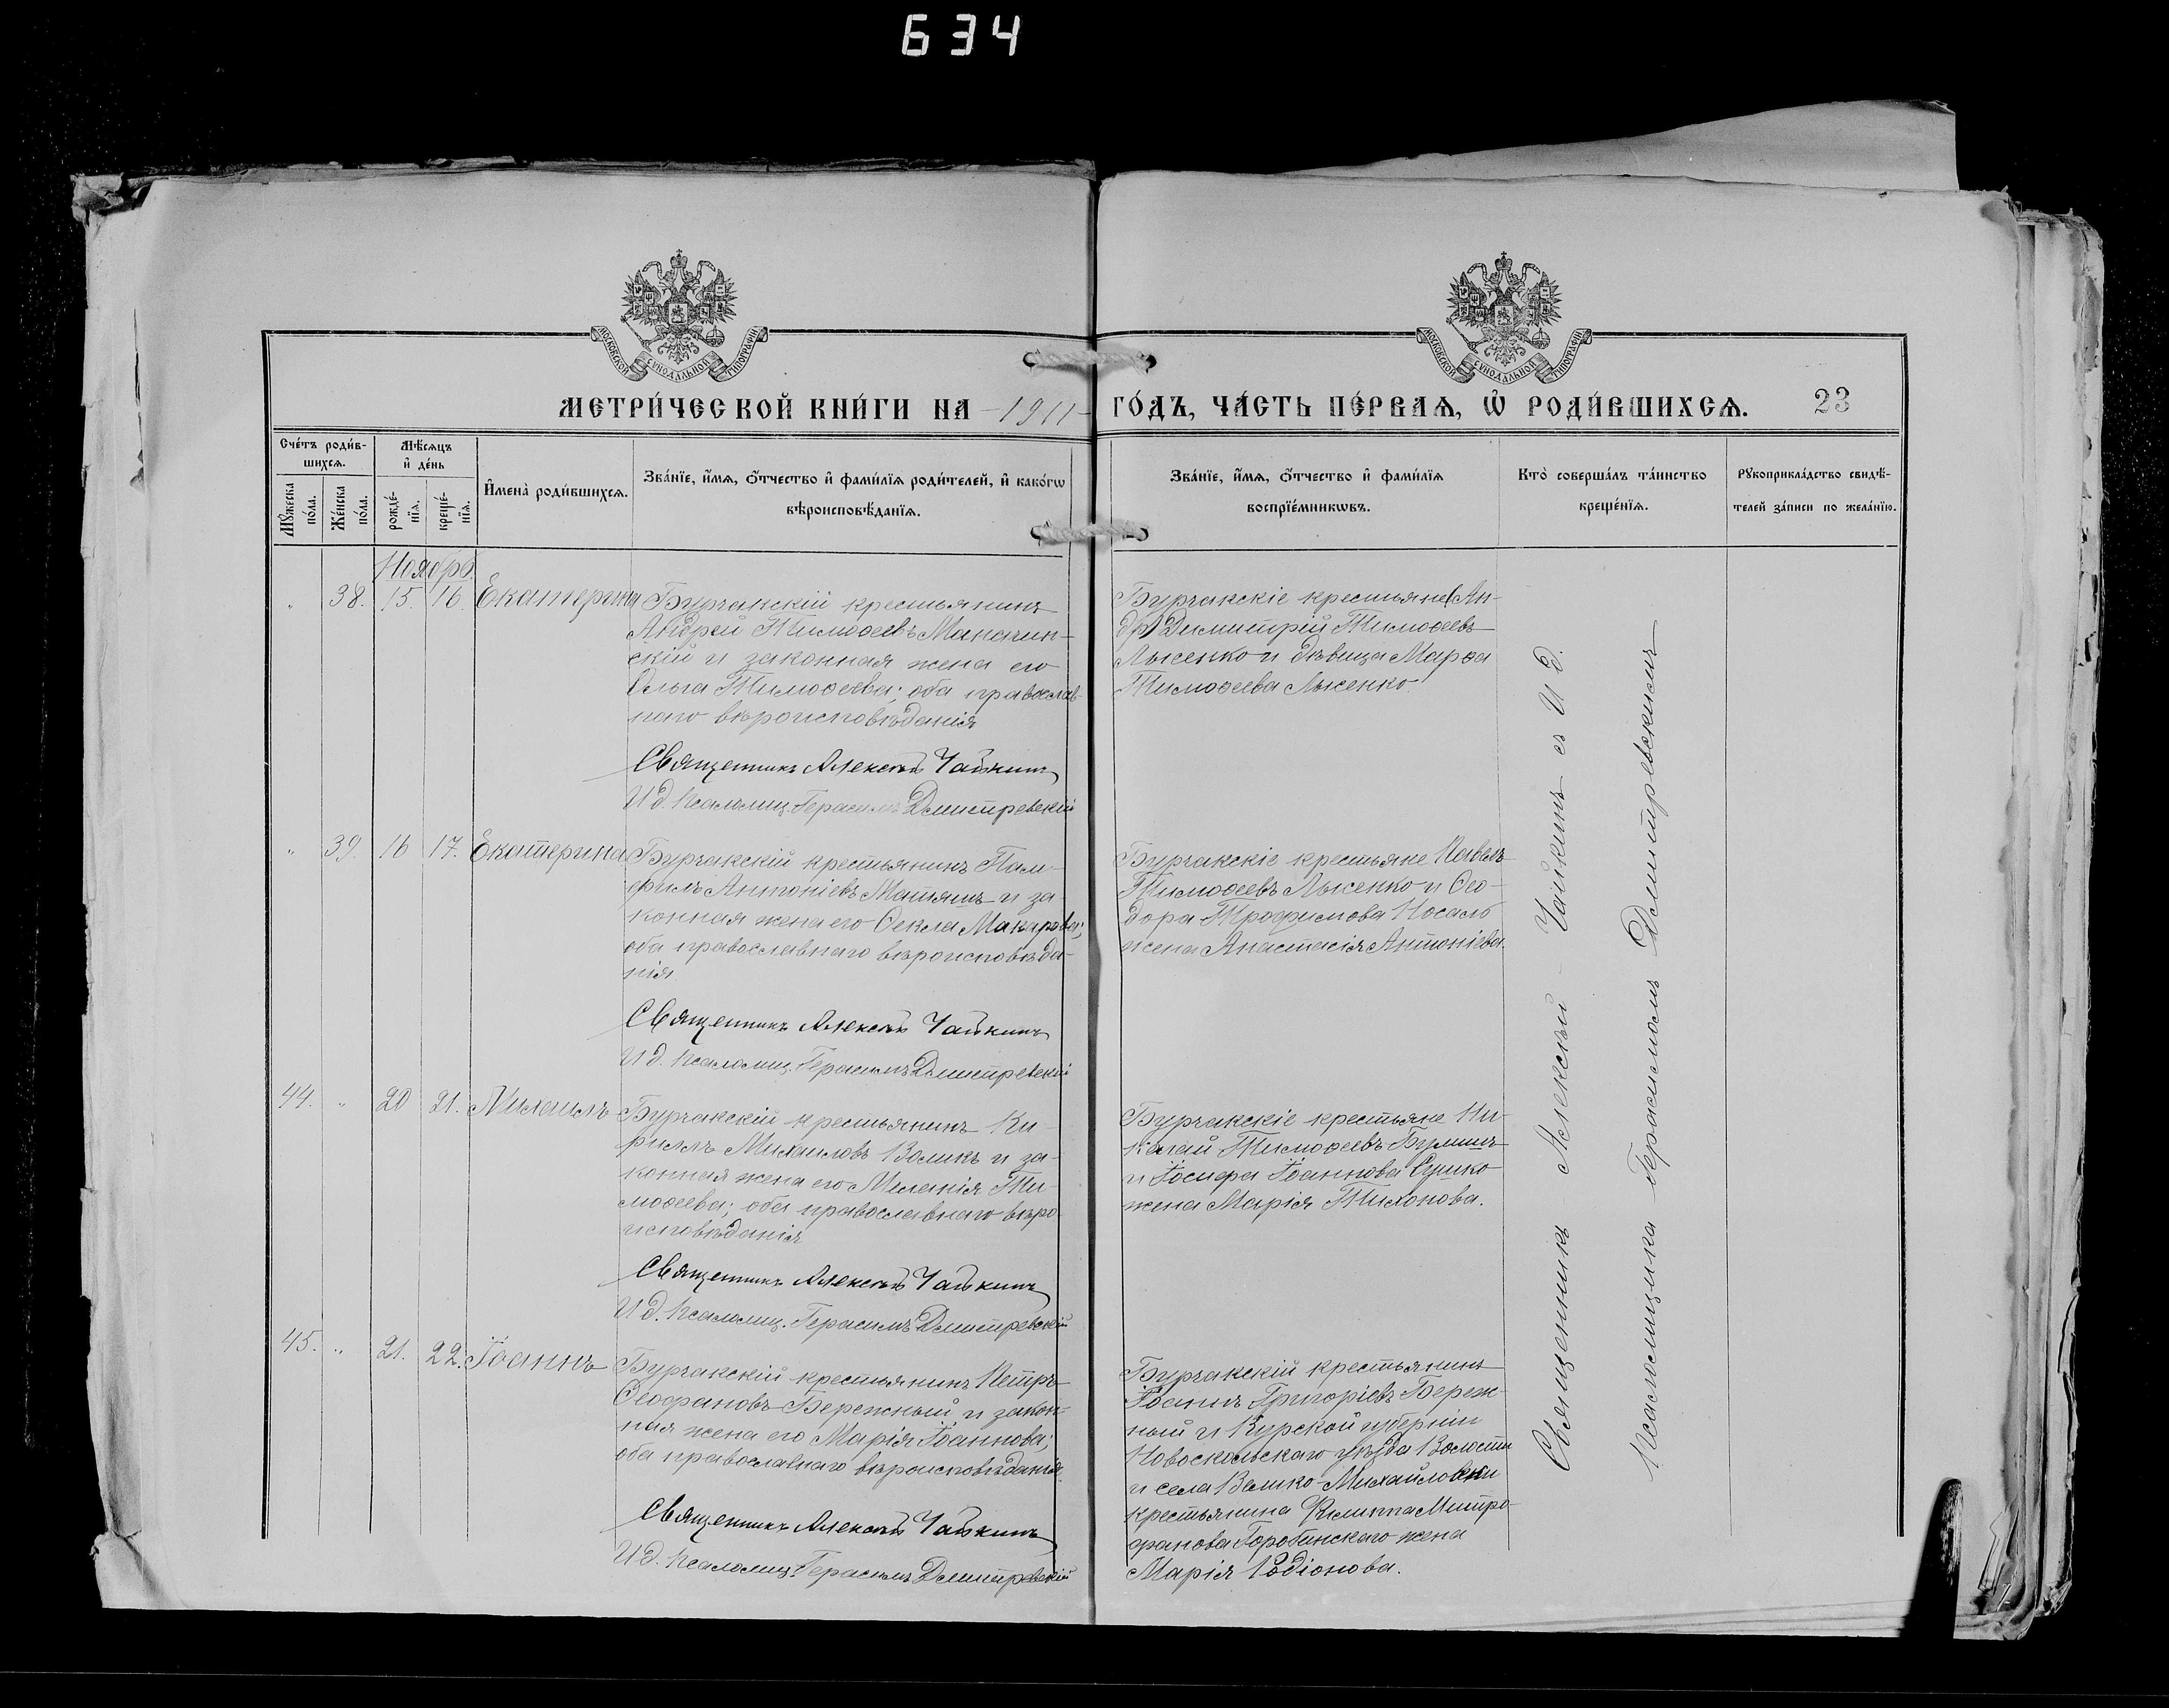 634
МОСКОВСКОЙ СѴНОДАЛЬНОЙ ТИПОГРАФІИ
МОСКОВСКОЙ СѴНОДАЛЬНОЙ ТИПОГРАФІИ
МЕТРИ́ЧЕСКОЙ КНИ́ГИ НА -1911- ГО́ДЪ, ЧА́СТЬ ПЕ́РВАѦ, Ѡ҆ РОДИ́ВШИХСѦ. 23
Сче́тъ роди́в-
шихсѧ.
Мꙋ́жеска
по́ла.
Же́нска
по́ла.
Мѣ́сѧцъ
и҆ де́нь
рожде́-
нїѧ.
креще́-
нїѧ.
И҆мена̀ роди́вшихсѧ.
Зва́нїе, и҆́мѧ, ѻ҆́тчество и҆ фами́лїѧ роди́телей, и҆ како́гѡ
вѣроисповѣ́данїѧ.
Зва́нїе, и҆́мѧ, ѻ҆́тчество и҆ фами́лїѧ
воспрїе́мникѡвъ.
Кто̀ соверша́лъ та́инство
креще́нїѧ.
Рꙋкоприкла́дство свидѣ́-
телей за́писи по жела́нїю.
Ноябрь.
" 38. 15. 16. Екатерина
Бурчакскій крестьянинъ
Андрей Тимоѳеевъ Маначин-
скій и законная жена его
Ольга Тимоѳеева; оба православ-
наго вѣроисповѣданія
Священникъ Алексѣй Чайкинъ
И д. псаломщ. Герасимъ Дмитревскій
Бурчакскіе крестьяне (Ан-
др) Димитрій Тимоѳеевъ
Лысенко и дѣвица Марѳа
Тимоѳеева Лысенко.
" 39. 16 17. Екатерина
Бурчакскій крестьянинъ Пам-
филъ Антоніевъ Матяшъ и за
конная жена его Ѳекла Макарова;
оба православнаго вѣроисповѣда-
нія.
Священникъ Алексѣй Чайкинъ
И д. псаломщ. Герасимъ Дмитревскій
Бурчакскіе крестьяне Павелъ
Тимоѳеевъ Лысенко и Ѳео-
дора Трофимова Носаль
жена Анастасія Антоніева.
44. " 20 21. Михаилъ
Бурчакскій крестьянинъ Ки-
риллъ Михаиловъ Воликъ и за-
конная жена его Меланія Ти-
моѳеева; оба православнаго вѣро
исповѣданія
Священникъ Алексѣй Чайкинъ
И д. псаломщ. Герасимъ Дмитревскій
Бурчакскіе крестьяне Ни-
колай Тимоѳеевъ
и Іосифа Іоаннова Сушко
жена Марія Тихонова.
45. " 21. 22. Іоаннъ
Бурчакскій крестьянинъ Петръ
Ѳеофановъ Бережный и закон-
ная жена его Марія Іоаннова;
оба православнаго вѣроисповѣданія.
Священникъ Алексѣй Чайкинъ
И д. псаломщ. Герасимъ Дмитревскій
Бурчакскій крестьянинъ
Іоаннъ Григоріевъ Береж-
ный и Курской губерніи
Новоскольскаго уѣзда Волости
и села Велико-Михайловки
крестьянина Филиппа Митро-
фанова жена
Марія Родіонова.
Священникъ Алексѣй Чайкинъ съ И д.
псаломщика Герасимомъ Дмитревскимъ